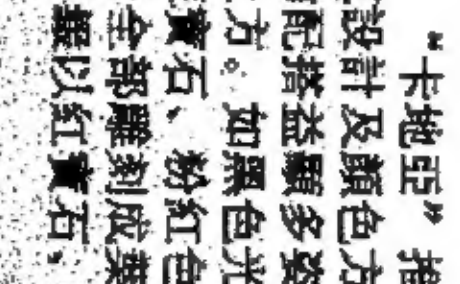 “卡地亞”
設計及顏色方
配搭益顯多姿
方。如黑色光
寶石、粉紅色
全部雕刻成葉
以紅寶石、